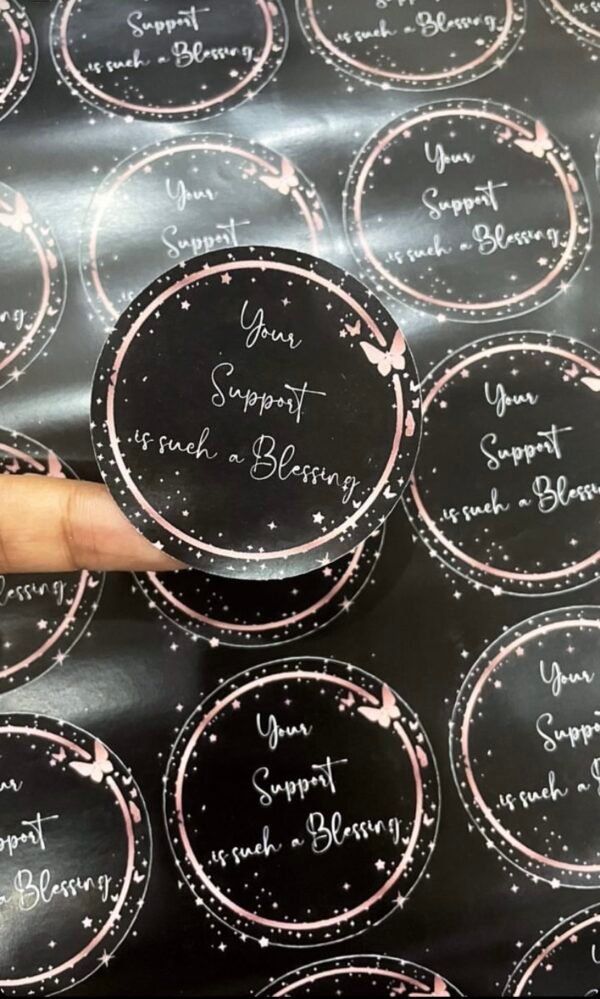 Support
is such a Blessing
Support
is such a Blessing
Your
Support
Your
Support
is such a Blessing
Your
Support
is such a Blessing
Your
Support
is such a
Your
Support
is such a Blessing
Your
is such a
a Blessing